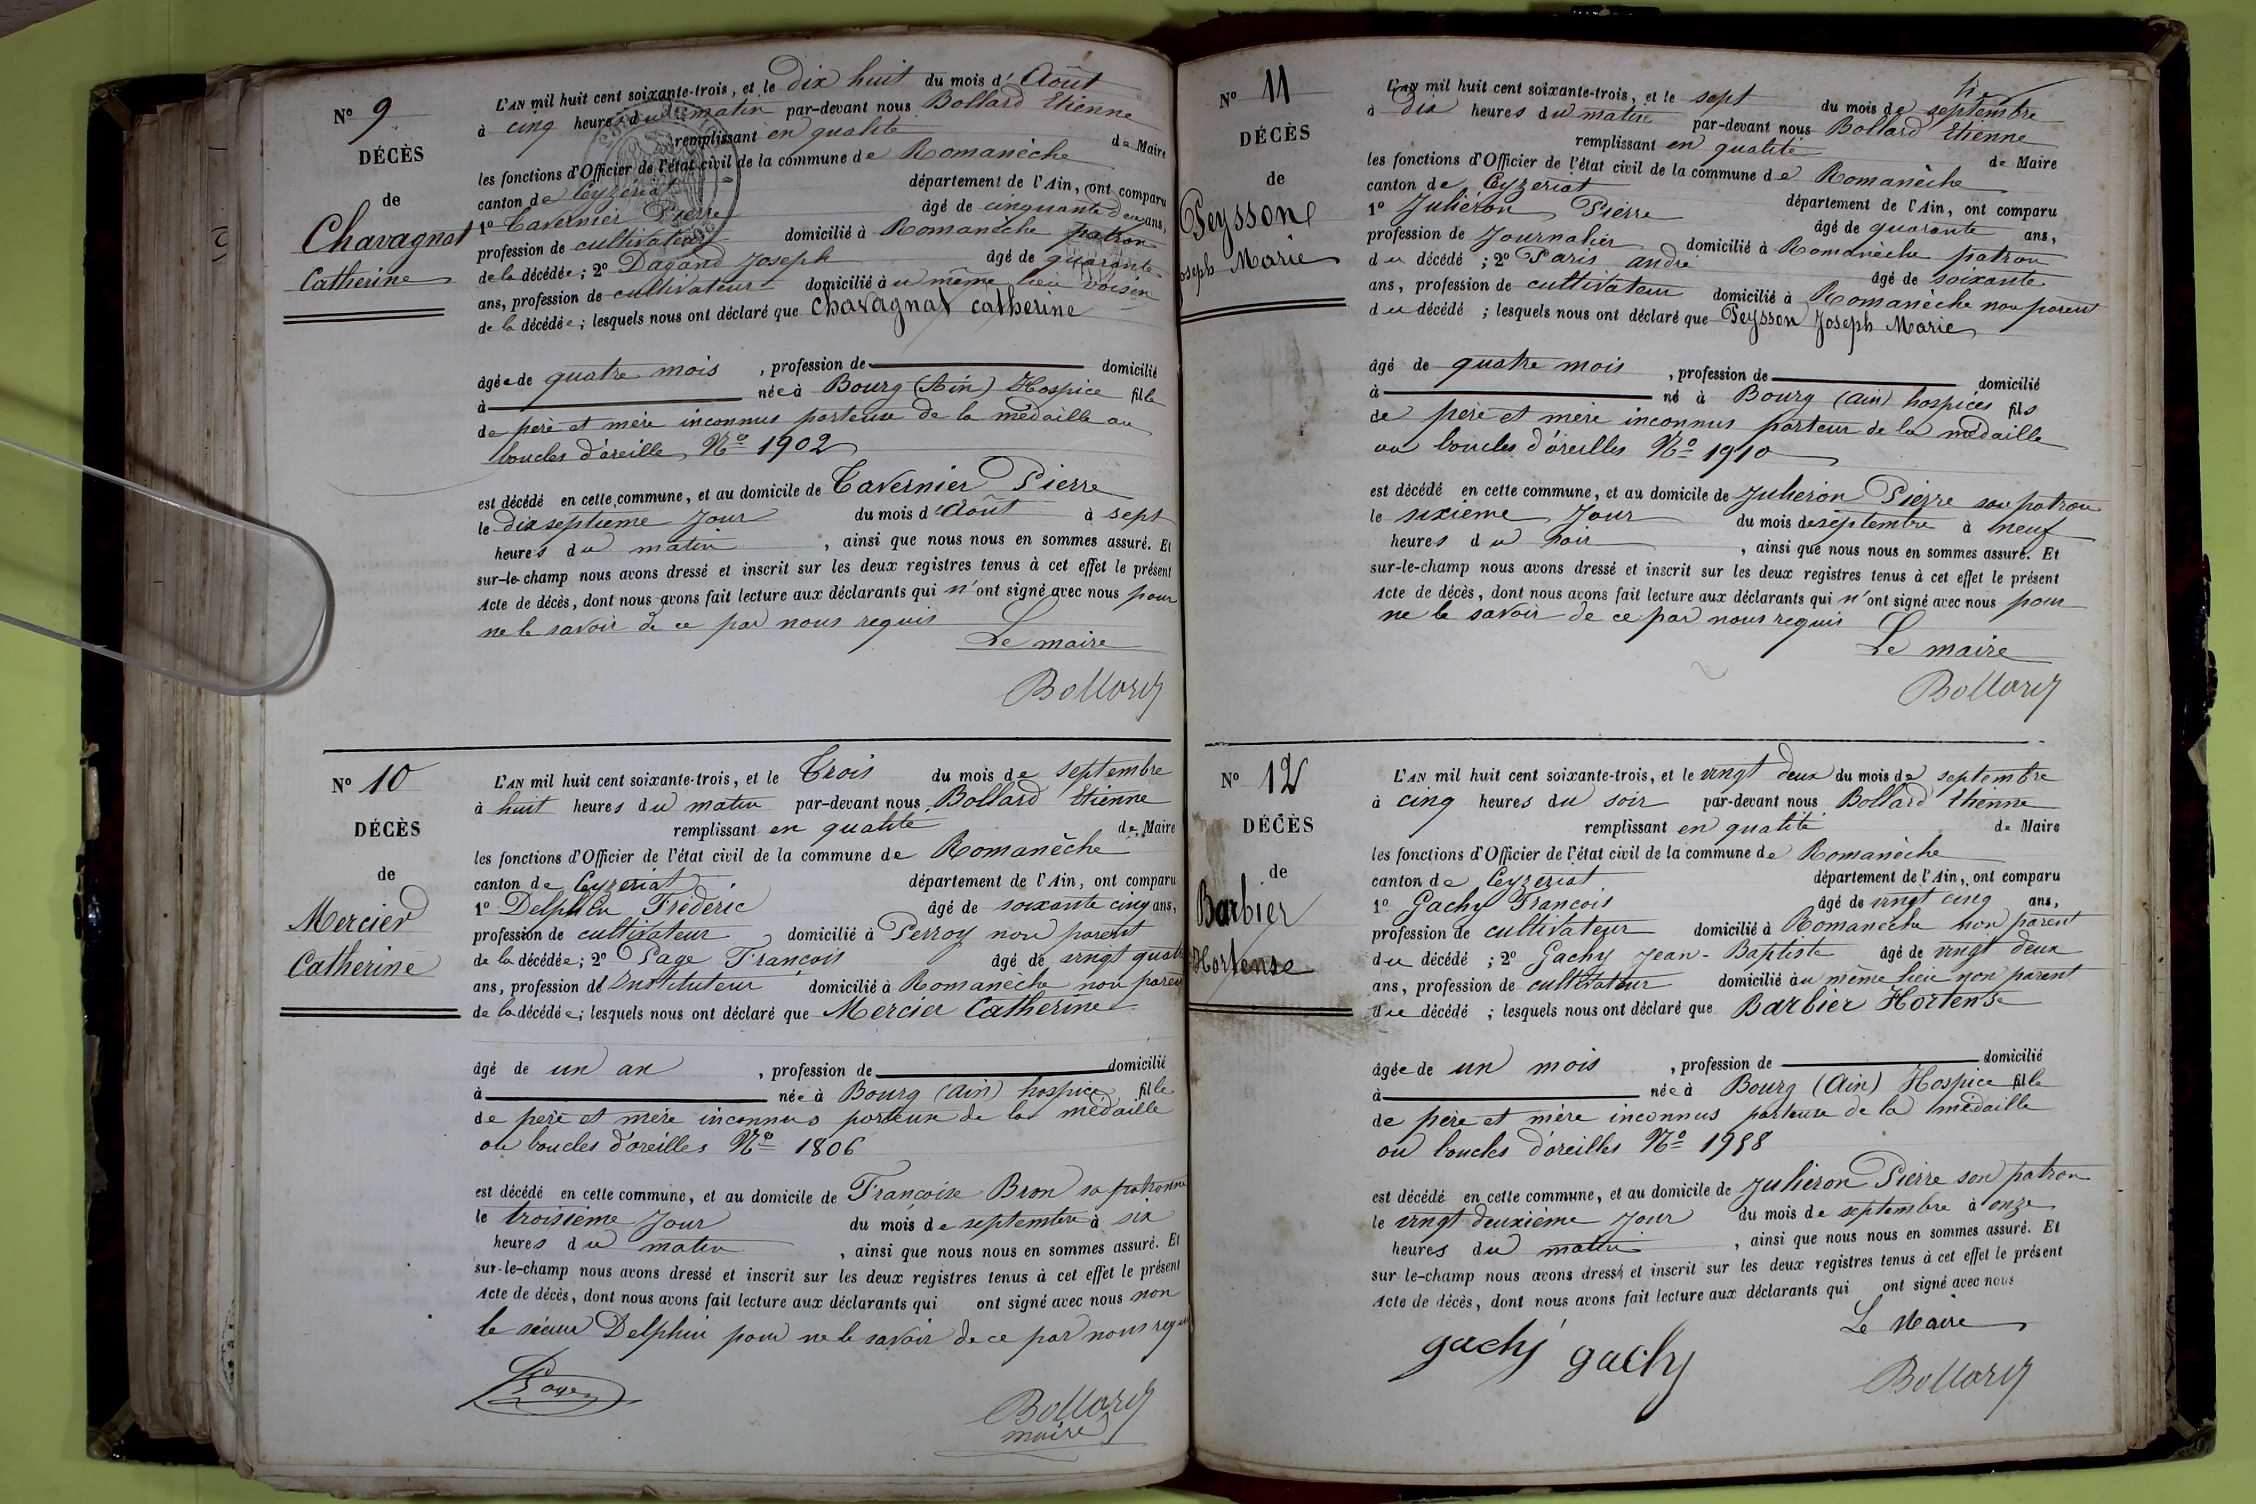 N° 9
DÉCÈS
de
Chavagnat
Catherine
L'AN mil huit cent soixante-trois, et le Dix huit du mois d' Août
à cinq heures du matin par-devant nous Bollard Etienne
remplissant en qualité de Maire
les fonctions d'Officier de l'état civil de la commune de Romanèche
canton de Ceyzériat département de l'Ain, ont comparu
1° Tavernier Pierre âgé de cinquante deux ans,
profession de cultivateur domicilié à Romanèche patron
de la décédée; 2° Dagand Joseph âgé de quarante
ans, profession de cultivateur domicilié à u même lieu voisin
de la décédée; lesquels nous ont déclaré que Chavagnat Catherine
âgée de quatre mois, profession de domicilié
à née à Bourg (Ain) Hospice fille
de père et mère inconnus porteuse de la médaille ou
boucles d'oreille N° 1902
est décédé en cette commune, et au domicile de Tavernier Pierre
le dix septième jour du mois d'Août à sept
heures du matin, ainsi que nous nous en sommes assuré. Et
sur-le-champ nous avons dressé et inscrit sur les deux registres tenus à cet effet le présent
Acte de décès, dont nous avons fait lecture aux déclarants qui n'ont signé avec nous pour
ne le savoir de ce par nous requis
Le maire
Bollard
N° 10
DÉCÈS
de
Mercier
Catherine
L'AN mil huit cent soixante-trois, et le Trois du mois de septembre
à huit heures du matin par-devant nous Bollard Etienne
remplissant en qualité de Maire
les fonctions d'Officier de l'état civil de la commune de Romanèche
canton de Ceyzeriat département de l'Ain, ont comparu
1° Delphin Frédéric âgé de soixante cinq ans,
profession de cultivateur domicilié à Perroy non parent
de la décédée; 2° Page François âgé de vingt quatre
ans, profession d Instituteur domicilié à Romanèche non parent
de la décédée; lesquels nous ont déclaré que Mercier Catherine
âgé de un an, profession de domicilié
à née à Bourg (Ain) hospice fille
de père et mère inconnus porteuse de la médaille
ou boucles d'oreilles N° 1806
est décédé en cette commune, et au domicile de Françoise Bron sa patronne
le troisième jour du mois de septembre à six
heures du matin, ainsi que nous nous en sommes assuré. Et
sur-le-champ nous avons dressé et inscrit sur les deux registres tenus à cet effet le présent
Acte de décès, dont nous avons fait lecture aux déclarants qui ont signé avec nous non
le sieur Delphin pour ne le savoir de ce par nous requis
Bollard
maire
N° 11
DÉCÈS
de
Peysson
Joseph Marie
L'AN mil huit cent soixante-trois, et le sept du mois de septembre
à Dix heures du matin par-devant nous Bollard Etienne
remplissant en qualité de Maire
les fonctions d'Officier de l'état civil de la commune de Romanèche
canton de Ceyzeriat département de l'Ain, ont comparu
1° Juhéron Pierre âgé de quarante ans,
profession de Journalier domicilié à Romanèche patron
du décédé; 2° Paris andré âgé de soixante
ans, profession de cultivateur domicilié à Romanèche non parent
du décédé; lesquels nous ont déclaré que Peysson Joseph Marie
âgé de quatre mois, profession de domicilié
à né à Bourg (Ain) hospices fils
de père et mère inconnus porteur de la médaille
ou boucles d'oreilles N° 1910
est décédé en cette commune, et au domicile de Juhéron Pierre son patron
le sixième Jour du mois de septembre à neuf
heures du soir, ainsi que nous nous en sommes assuré. Et
sur-le-champ nous avons dressé et inscrit sur les deux registres tenus à cet effet le présent
Acte de décès, dont nous avons fait lecture aux déclarants qui n'ont signé avec nous pour
ne le savoir de ce par nous requis
Le maire
Bollard
N° 12
DÉCÈS
de
Barbier
Hortense
L'AN mil huit cent soixante-trois, et le vingt deux du mois de septembre
à cinq heures du soir par-devant nous Bollard Etienne
remplissant en qualité de Maire
les fonctions d'Officier de l'état civil de la commune de Romanèche
canton de Ceyzeriat département de l'Ain, ont comparu
1° Gachy François âgé de vingt cinq ans,
profession de cultivateur domicilié à Romanèche non parent
du décédé; 2° Gachy Jean-Baptiste âgé de vingt deux
ans, profession de cultivateur domicilié au même lieu non parent
du décédé; lesquels nous ont déclaré que Barbier Hortense
âgée de un mois, profession de domicilié
à née à Bourg (Ain) Hospice fille
de père et mère inconnus porteuse de la médaille
ou boucles d'oreilles N° 1958
est décédé en cette commune, et au domicile de Juhéron Pierre son patron
le vingt deuxième Jour du mois de septembre à onze
heures du matin, ainsi que nous nous en sommes assuré. Et
sur le-champ nous avons dressé et inscrit sur les deux registres tenus à cet effet le présent
Acte de décès, dont nous avons fait lecture aux déclarants qui ont signé avec nous
Le Maire
gachy gachy
Bollard